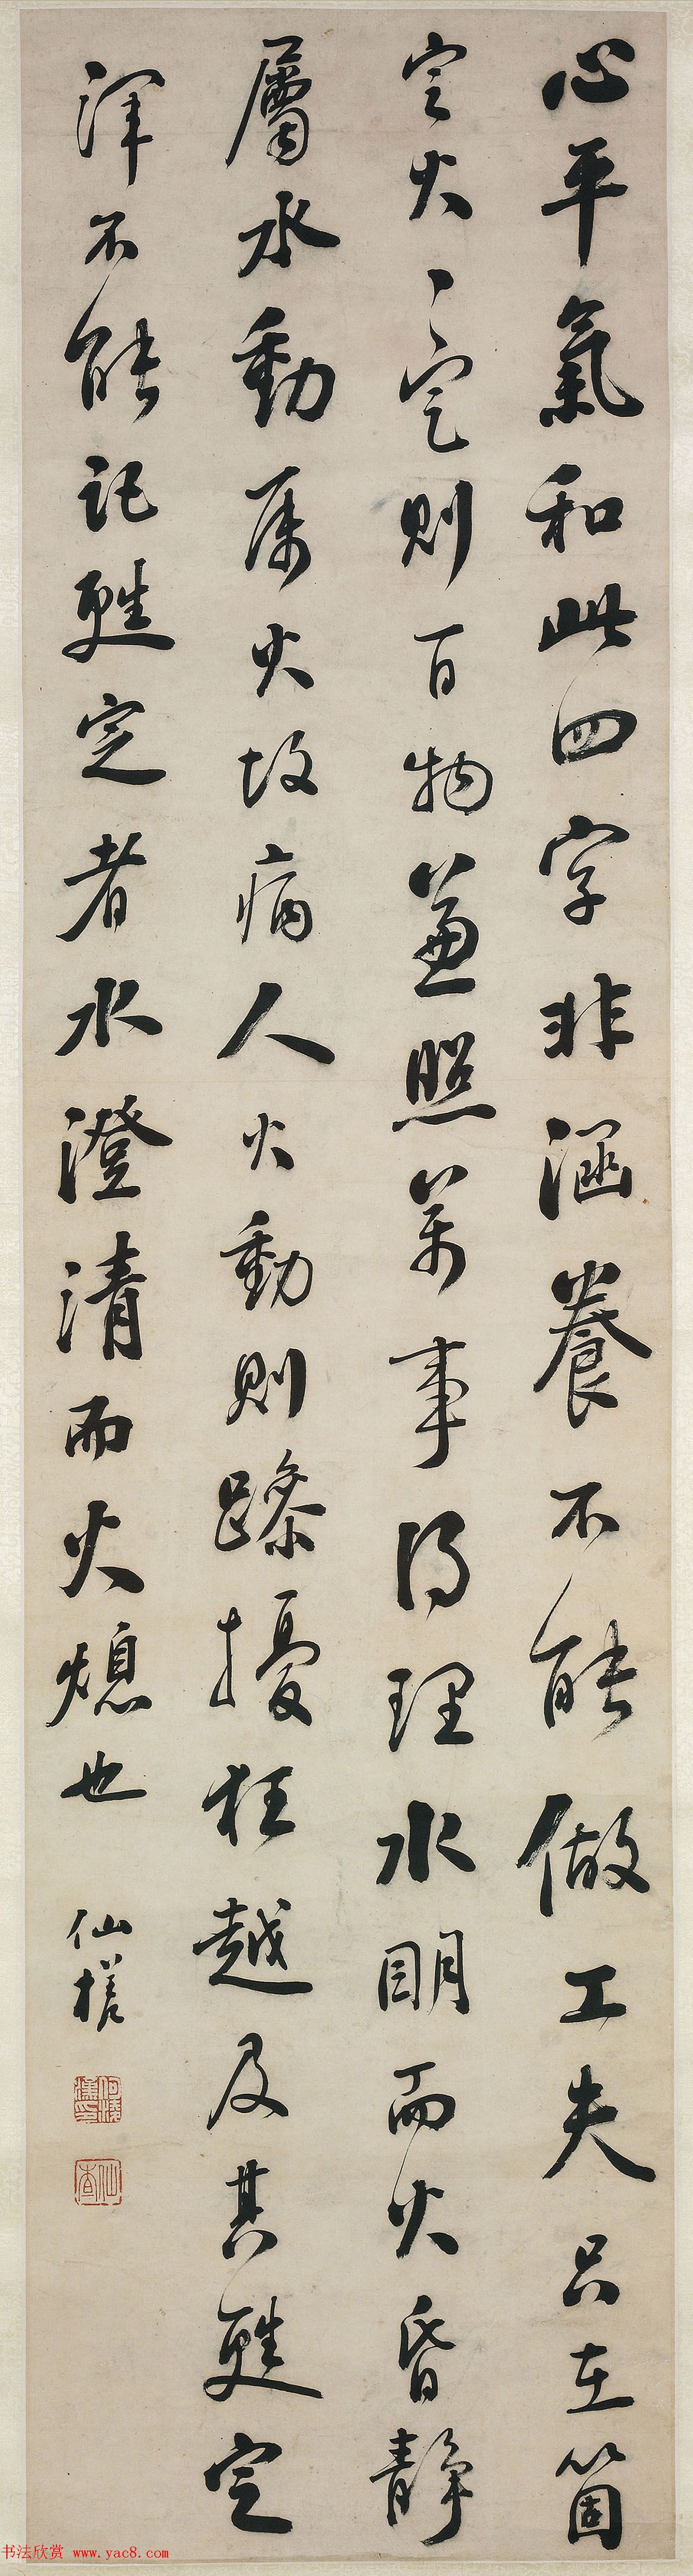 心平氣和此四字非涵養不能做工夫只在箇
定火〻定則百物兼照萬事得理水明而火昏靜
屬水動属火故病人火動則躁擾狂越及其甦定
渾不能記甦定者水澄清而火熄也
仙槎
何淩漢印
仙査
书法欣赏 www.yac8.com